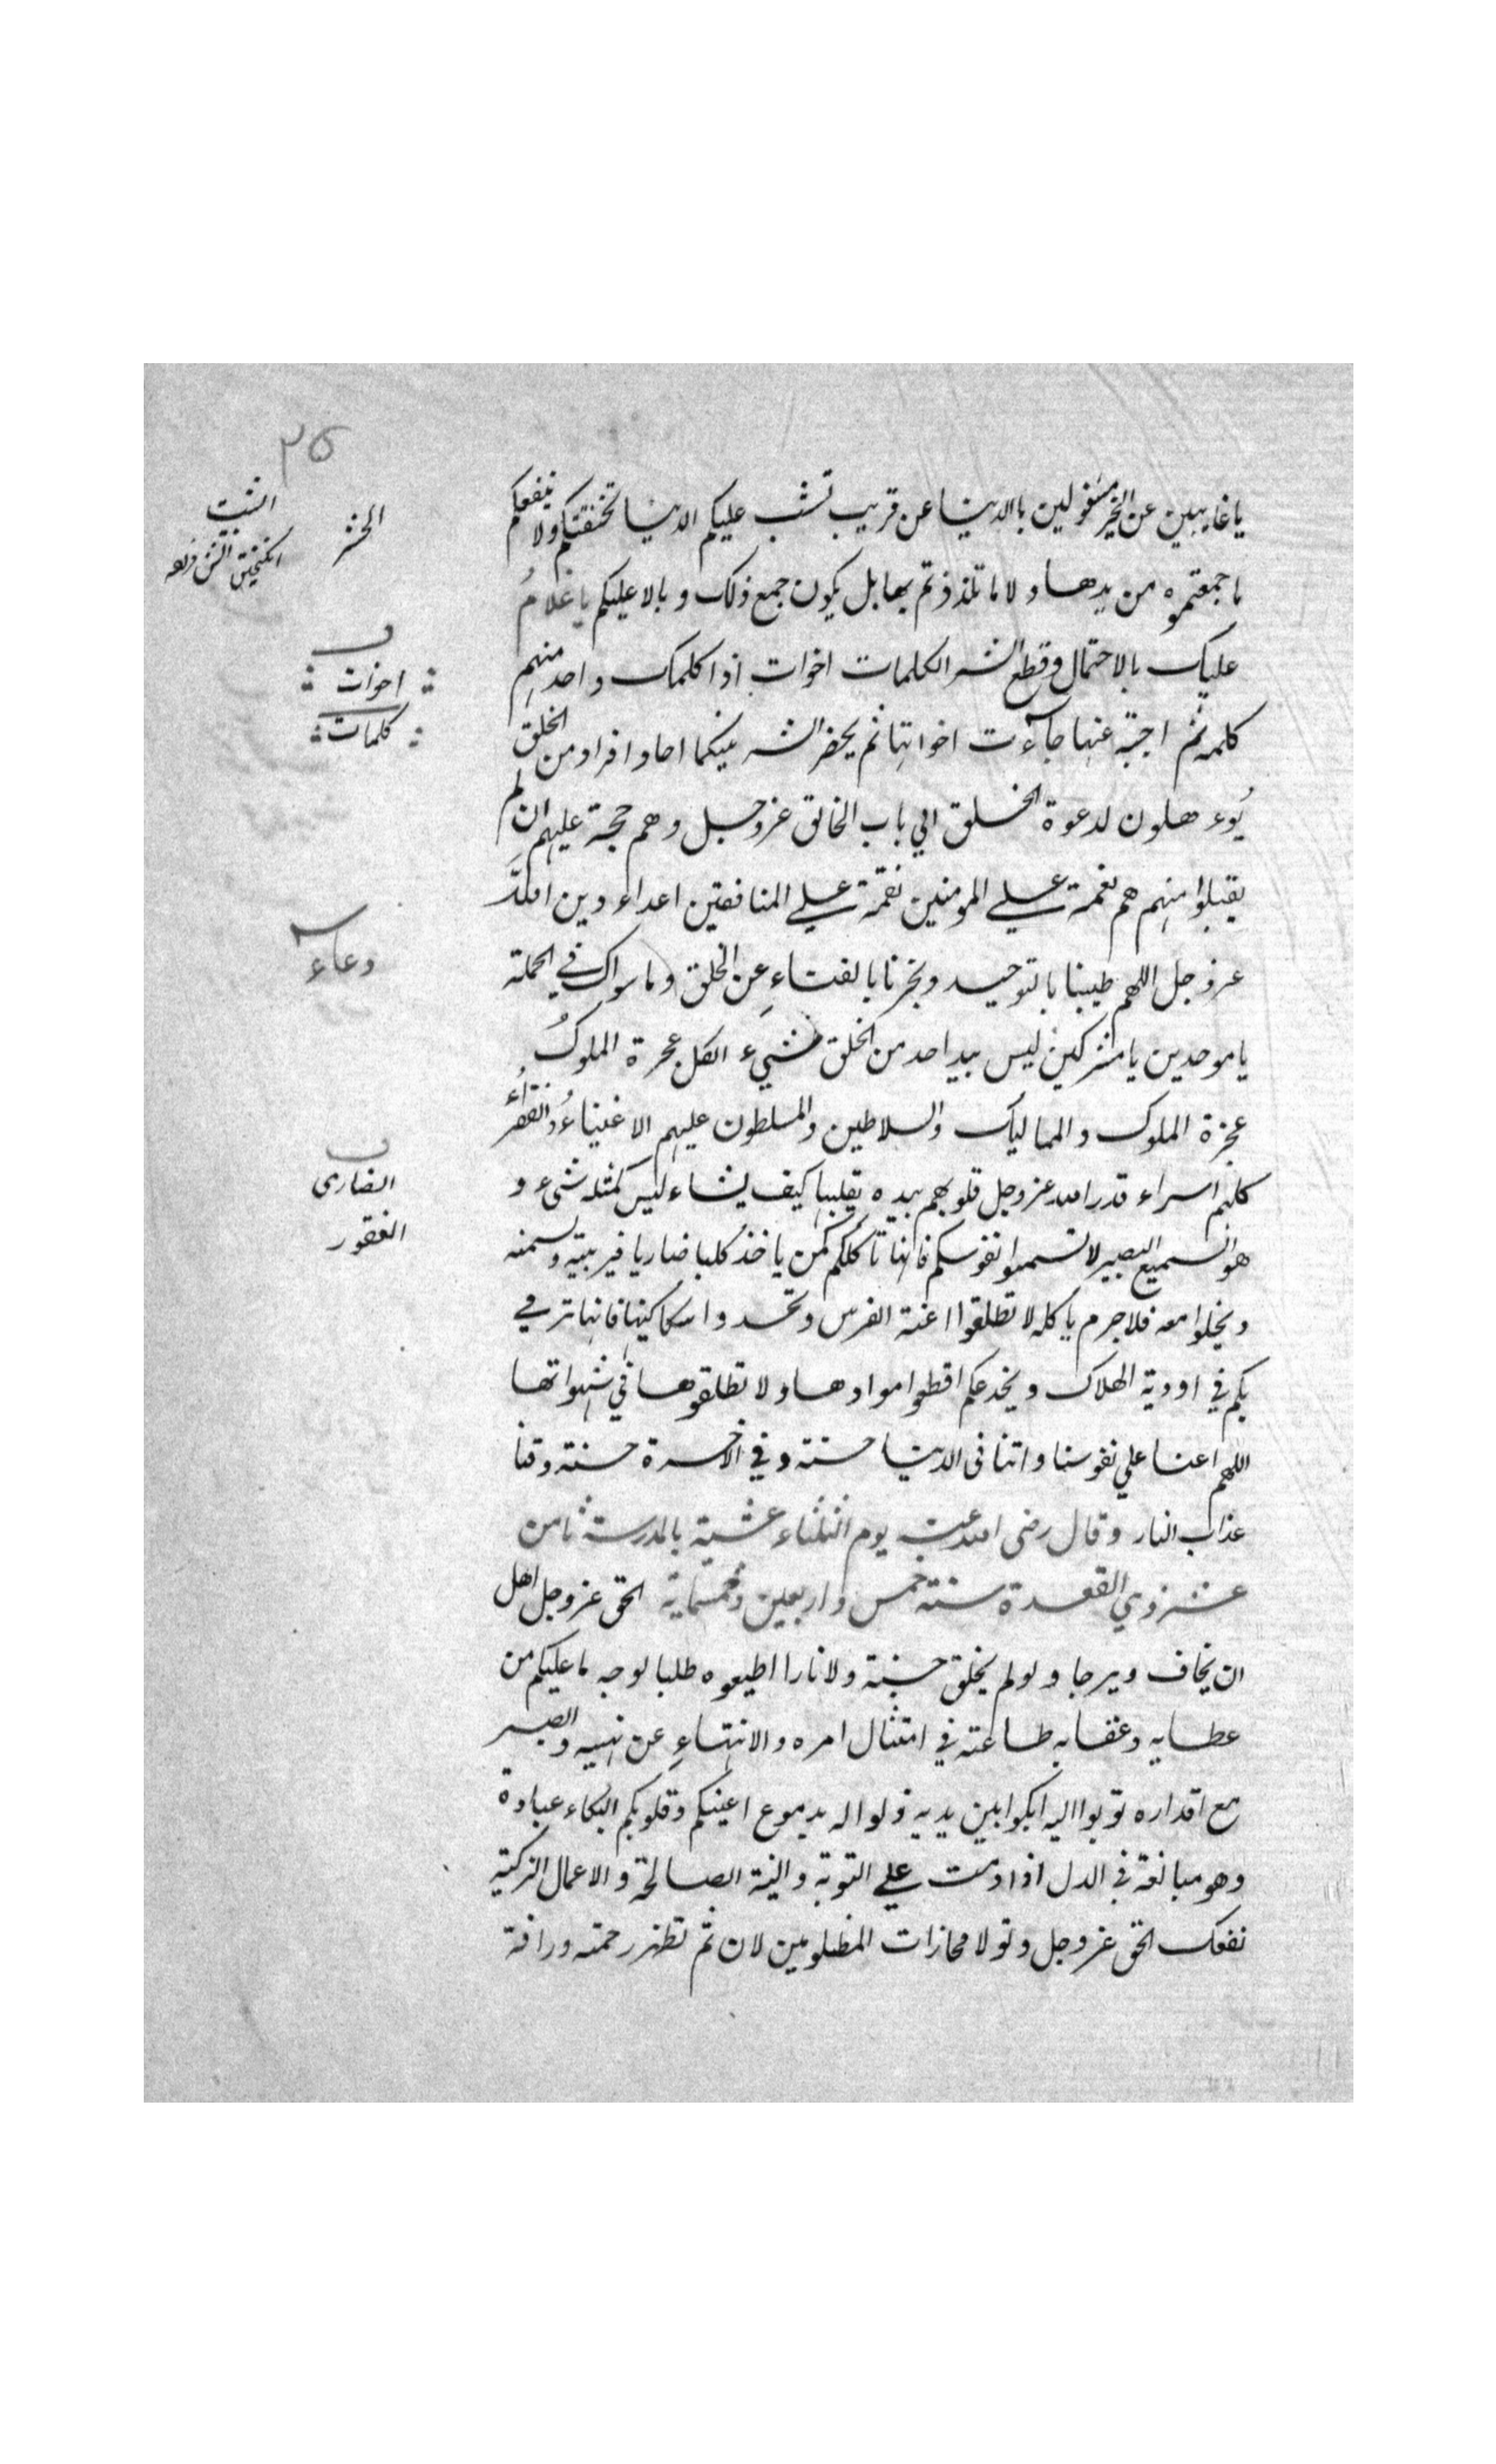 ٢٥
يا غايبين عن الخير مشغولين بالدنيا عن قريب تشب عليكم الدنيا تخنقنكم ولا ينفعكم
ما جمعتموه من يدها ولا ما تلذذتم بها بل يكون جمع ذلك وبالا عليكم يا غلامُ
عليك بالاحتمال وقطع الشر الكلمات اخوات اذا كلمك واحد منهم
كلمه ثم اجبته عنها جاءت اخواتها ثم يحضر الشر بينكما احاد افراد من الخلق
يُوءهلون لدعوة الخلق الي باب الخالق عز وجل وهم حجة عليهم ان لم
يقبلوا منهم هم نعمة علي المومنين نقمة علي المنافقين اعداء دين الله
عز وجل اللهم طيبنا بالتوحيد وبخرنا بالفناءِ عن الخلق وما سواك في الجملة
يا موحدين يا مشركين ليس بيد احد من الخلق شيء الكل عجزة الملوكُ
عجزة الملوك والمماليك والسلاطين والمسلطون عليهم الاغنياءُ والفقراءُ
كلهم اسراء قدر الله عز وجل قلوبهم بيده يقلبها كيف يشاء ليس كمثله شيء و
هو السميع البصير لا تسمنوا نفوسكم فانها تأكلكم كمن ياخذ كلبا ضاريا فيربيه ويسمنه
ويخلوا معه فلا جرم ياكله لا تطلقوا اعنة الفرس وتحدوا سكاكينها فانها ترمي
بكم في اودية الهلاك ويخدعكم اقطعوا موادها ولا تطلقوها في شهواتها
اللهم اعنا علي نفوسنا واتنا فى الدنيا حسنة وفي الاخرة حسنة وقنا
عذاب النار وقال رضى الله عنه يوم الثلثاء عشية بالمدرسة ثامن
عشر ذي القعدة سنة خمس واربعين وخمسماية الحق عز وجل اهل
ان يخاف ويرجا ولو لم يخلق جنة ولا نارا اطيعوه طلبا لوجهه ما عليكم من
عطايه وعقابه طاعته في امتثال امره والانتهاءِ عن نهيه والصبر
مع اقداره توبوا اليه ابكوا بين يديه ذلوا له بدموع اعينكم وقلوبكم البكاء عبادة
وهو مبالغة في الذل اذا دمت علي التوبة والنية الصالحة والاعمال الزكية
نفعك الحق عز وجل وتولا مجازات المظلومين لان ثم تظهر رحمته ورافة
الخير
اخوات
كلمات
دعاء
الضارى
العقور